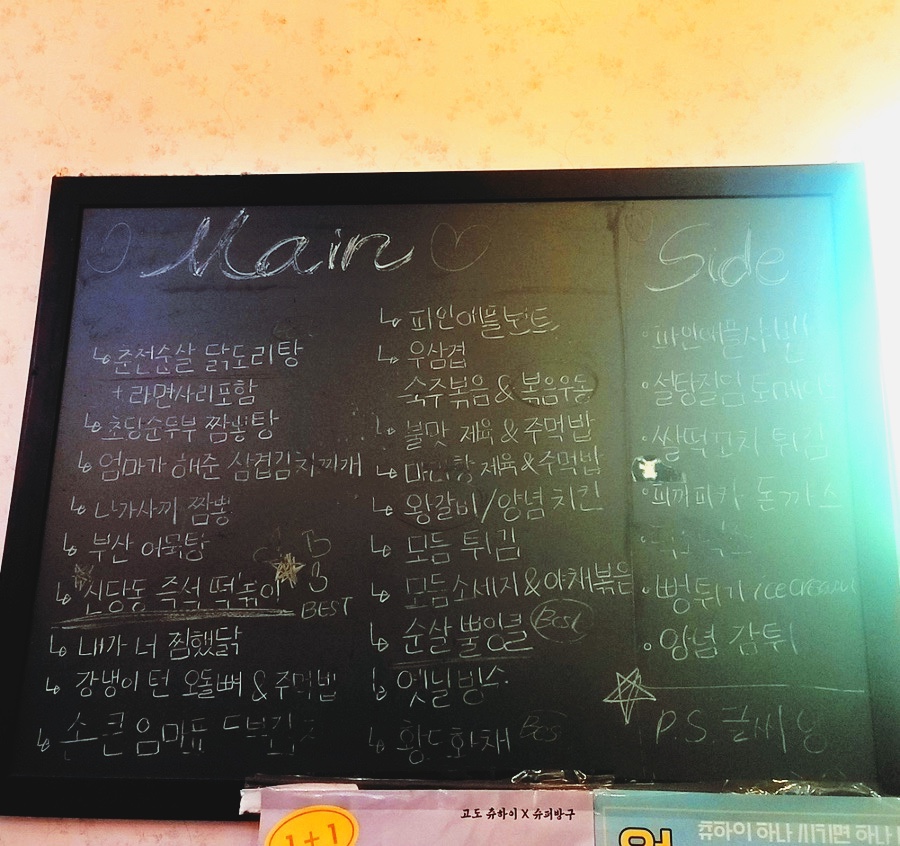 Main
↳ 춘천순살 닭도리탕
+ 라면사리포함
↳ 초당순두부 짬뽕탕
↳ 엄마가 해준 삼겹김치찌개
↳ 나가사끼 짬뽕
↳ 부산 어묵탕
↳ 신당동 즉석 떡볶이 BEST
↳ 내가 너 찜했닭
↳ 강냉이 턴 오돌뼈 & 주먹밥
↳ 손 큰 엄마표
↳ 파인애플샤베트
↳ 우삼겹
숙주볶음 & 볶음우동
↳ 불맛 제육 & 주먹밥
↳ 제육 & 주먹밥
↳ 왕갈비/양념 치킨
↳ 모듬 튀김
↳ 모듬소세지 & 야채볶음
↳ 순살 뿌링클 Best
↳ 옛날빙수
↳ 황도화채 Best
Side
• 설탕절임 토마토
• 쌀떡꼬치 튀김
• 피까피카 돈까스
• 뻥튀기 ice cream
• 양념 감튀
P.S.
1+1
고도 츄하이 X 슈퍼방구
츄하이 하나 시키면 하나